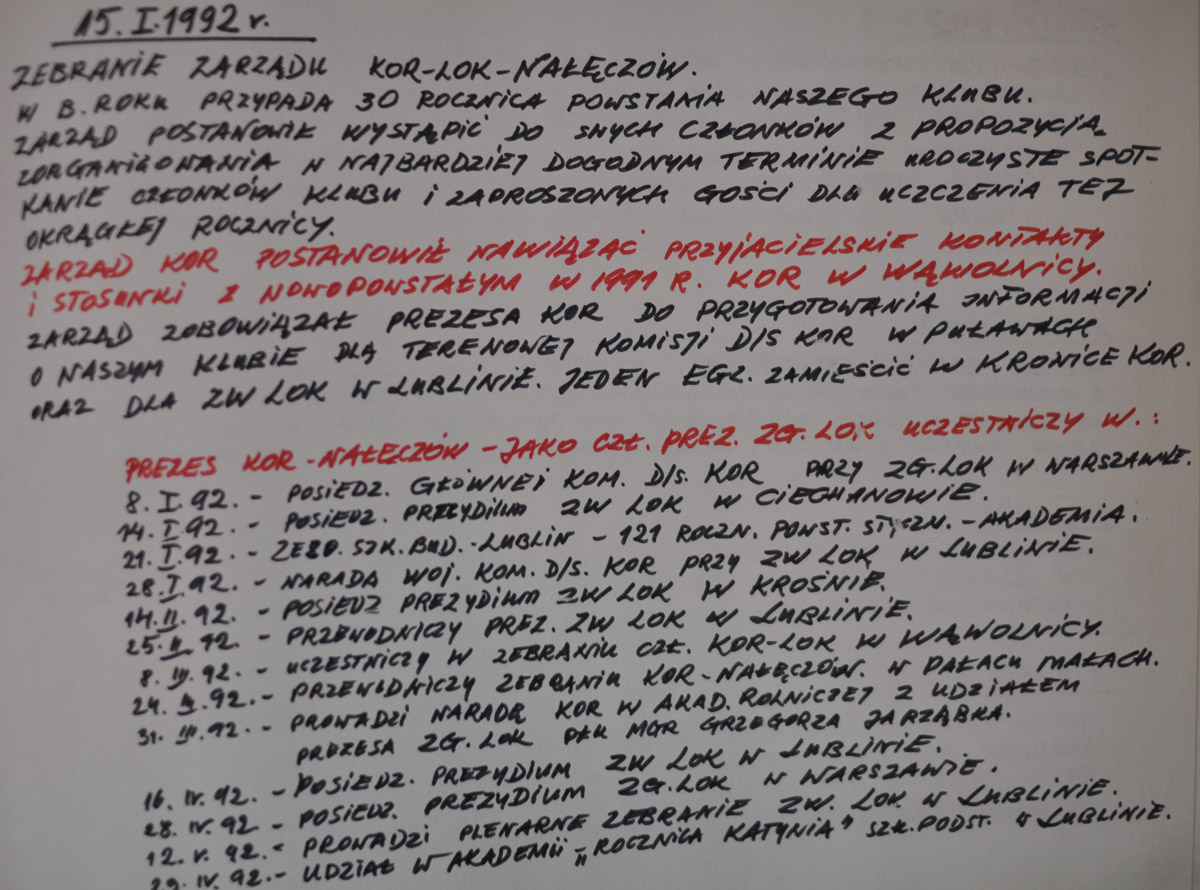 15. I. 1992 r.
ZEBRANIE ZARZĄDU KOR-LOK-NAŁĘCZÓW.
W B. ROKU PRZYPADA 30 ROCZNICA POWSTANIA NASZEGO KLUBU.
ZARZĄD POSTANOWIŁ WYSTĄPIĆ DO SWYCH CZŁONKÓW Z PROPOZYCJĄ
ZORGANIZOWANIA W NAJBARDZIEJ DOGODNYM TERMINIE UROCZYSTE SPOT-
KANIE CZŁONKÓW KLUBU I ZAPROSZONYCH GOŚCI DLA UCZCZENIA TEJ
OKRĄGŁEJ ROCZNICY.
ZARZĄD KOR POSTANOWIŁ NAWIĄZAĆ PRZYJACIELSKIE KONTAKTY
I STOSUNKI Z NOWOPOWSTAŁYM W 1991 R. KOR W WĄWOLNICY.
ZARZĄD ZOBOWIĄZAŁ PREZESA KOR DO PRZYGOTOWANIA INFORMACJI
O NASZYM KLUBIE DLĄ TERENOWEJ KOMISJI D/S KOR W PUŁAWACH
ORAZ DLA ZW LOK W LUBLINIE. JEDEN EGZ. ZAMIEŚCIĆ W KRONICE KOR.
PREZES KOR-NAŁĘCZÓW - JAKO CZŁ. PREZ. ZG. LOK UCZESTNICZY W.:
8. I. 92. - POSIEDZ. GŁÓWNEJ KOM. D/S. KOR PRZY ZG. LOK W WARSZAWIE.
14. I. 92. - POSIEDZ. PREZYDIUM ZW LOK W CIECHANOWIE.
21. I. 92. - ZESP. SZK. BUD. - LUBLIN - 121 ROCZN. POWST. STYCZN. - AKADEMIA.
28. I. 92. - NARADA WOJ. KOM. D/S. KOR PRZY ZW LOK W LUBLINIE.
14. II. 92. - POSIEDZ PREZYDIUM ZW LOK W KROŚNIE.
25. II. 92. - PRZEWODNICZY PREZ. ZW LOK W LUBLINIE.
8. III. 92. - UCZESTNICZY W ZEBRANIU CZŁ. KOR-LOK W WĄWOLNICY.
24. 92. - PRZEWODNICZY ZEBRANIU KOR-NAŁĘCZÓW. W PAŁACU MAŁACH.
31. III. 92. - PROWADZI NARADĘ KOR W AKAD. ROLNICZEJ Z UDZIAŁEM
PREZESA ZG. LOK PŁK MGR GRZEGORZA JARZĄBKA.
16. IV. 92. - POSIEDZ. PREZYDIUM ZW LOK W LUBLINIE.
28. IV. 92 - POSIEDZ. PREZYDIUM ZG. LOK W WARSZAWIE.
12. V. 92. - PROWADZI PLENARNE ZEBRANIE ZW. LOK W LUBLINIE.
29. IV. 92. - UDZIAŁ W AKADEMII „ROCZNICA KATYNIA" SZK. PODST. W LUBLINIE.